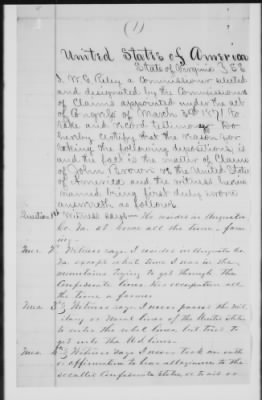 (1)
United States of America
State of Virginia } S.S.
I. W. G. Riley a Commissioner selected
and designated by the Commissioners
of Claims appointed under the act
of Congress of March 3rd 1871 to
take and record testimony Do
hereby certify that the reason for
taking the following depositions is
and the fact is the matter of Claim
of John Brown vs the United States
of America and the witness herein
named being first duly sworn
answereth as follows
Question 1st Witness says— He resides in Augusta
Co. Va. at home all the time. farm
ing—
Ques. 2nd Witness says I resided in Augusta Co.
Va. except what time I was in the
mountains trying to get through the
Confederate lines. His occupation all
the time a farmer
Ques 3rd Witness says I never passed the mil
itary or naval lines of the United States
to enter the rebel lines but tried to
get into the U.S. lines—
Ques 4th Witness says I never took an oath
or affirmation to bear allegiance to the
so called Confederate States or to aid or